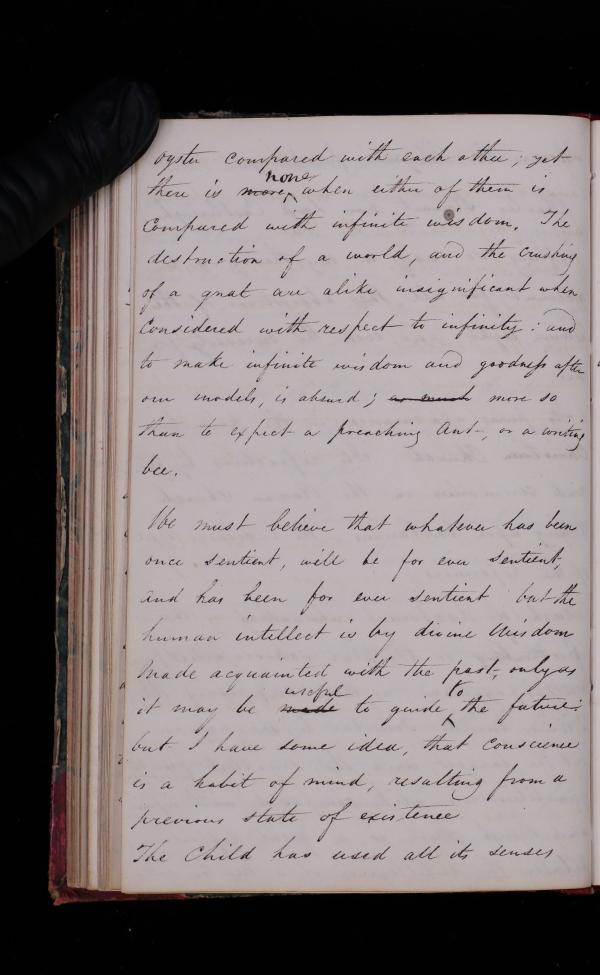 oyster compared with each other; yet
there is more none when either of them is
compared with infinite wisdom. The
destruction of a world, and the crushing
of a gnat are alike insignificant when
considered with respect to infinity: and
to make infinite wisdom and goodness after
our models, is absurd; as much more so
than to expect a preaching Ant-, or a writing
bee.
We must believe that whatever has been
once sentient, will be for ever sentient,
and has been for ever sentient but the
human intellect is by divine Wisdom
made acquainted with the past, only as
it may be made useful to guide to the future:
but I have some idea, that conscience
is a habit of mind, resulting from a
previous state of existence
The Child has used all its senses